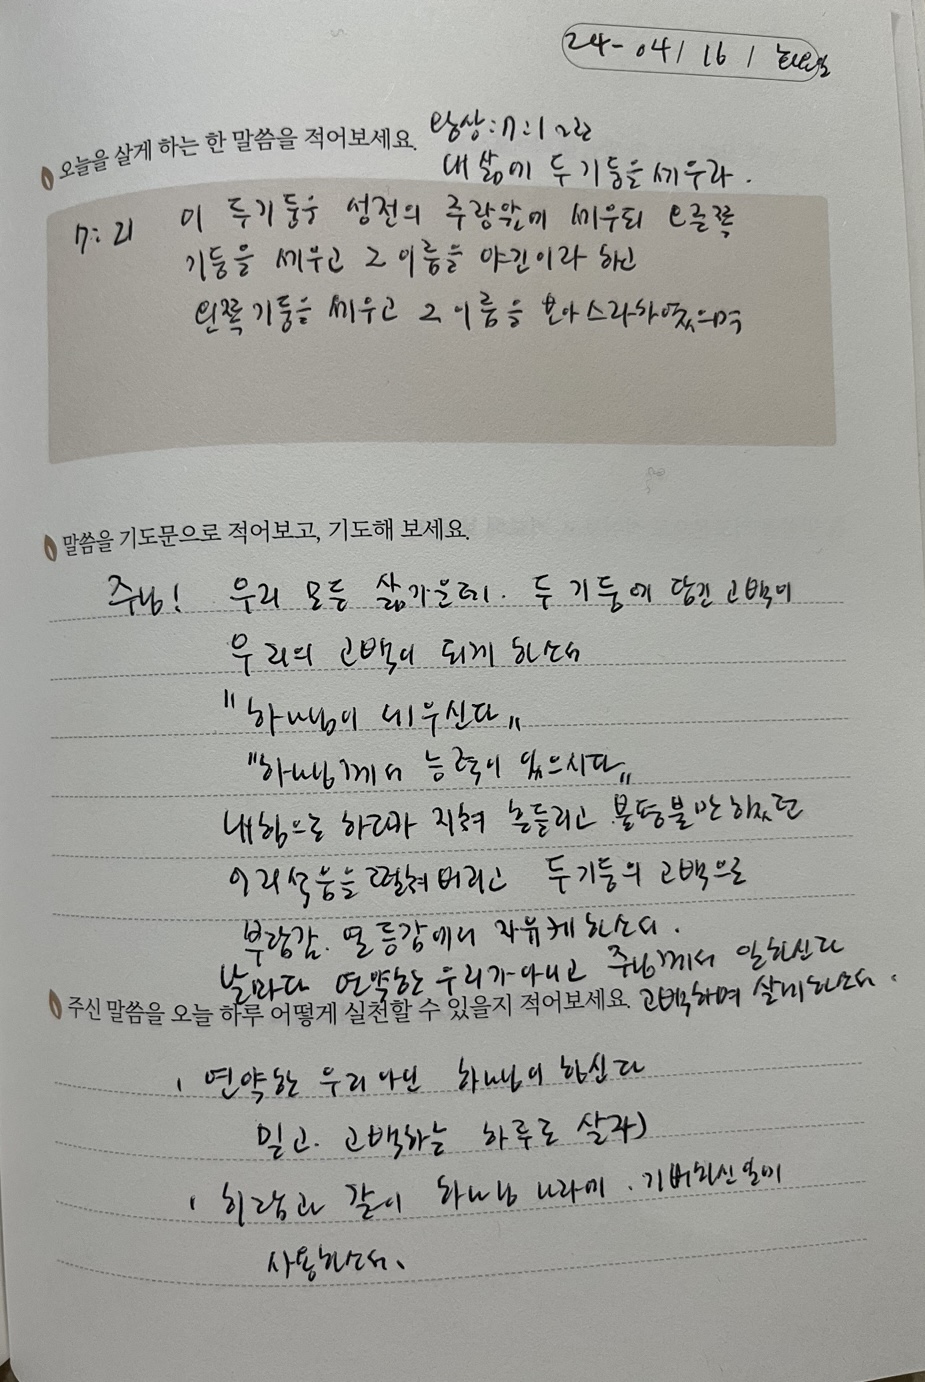 24-04/16/화요일
오늘을 살게 하는 한 말씀을 적어보세요.
왕상:7:1
내 삶에 두 기둥을 세우라.
7:21 이 두 기둥을 성전의 주랑앞에 세우되 오른쪽
기둥을 세우고 그 이름을 야긴이라 하고
왼쪽 기둥을 세우고 그 이름을 보아스라하였으며
말씀을 기도문으로 적어보고, 기도해 보세요.
주님! 우리 모든 삶가운데. 두 기둥에 담긴 고백이
우리의 고백이 되게 하소서
"하나님이 세우신다"
"하나님께서 능력이 있으시다"
내힘으로 하다가 지쳐 흔들리고 불평불만 하였던
어리석음을 떨쳐버리고 두기둥의 고백으로
부담감. 열등감에서 자유케하소서.
날마다 연약한 우리가아니고 주님께서 일하신다
고백하며 살게하소서.
주신 말씀을 오늘 하루 어떻게 실천할 수 있을지 적어보세요.
, 연약한 우리 아닌 하나님이 하신다
믿고. 고백하는 하루로 살자)
, 히람과 같이 하나님 나라에. 기뻐하신일에
사용하소서.